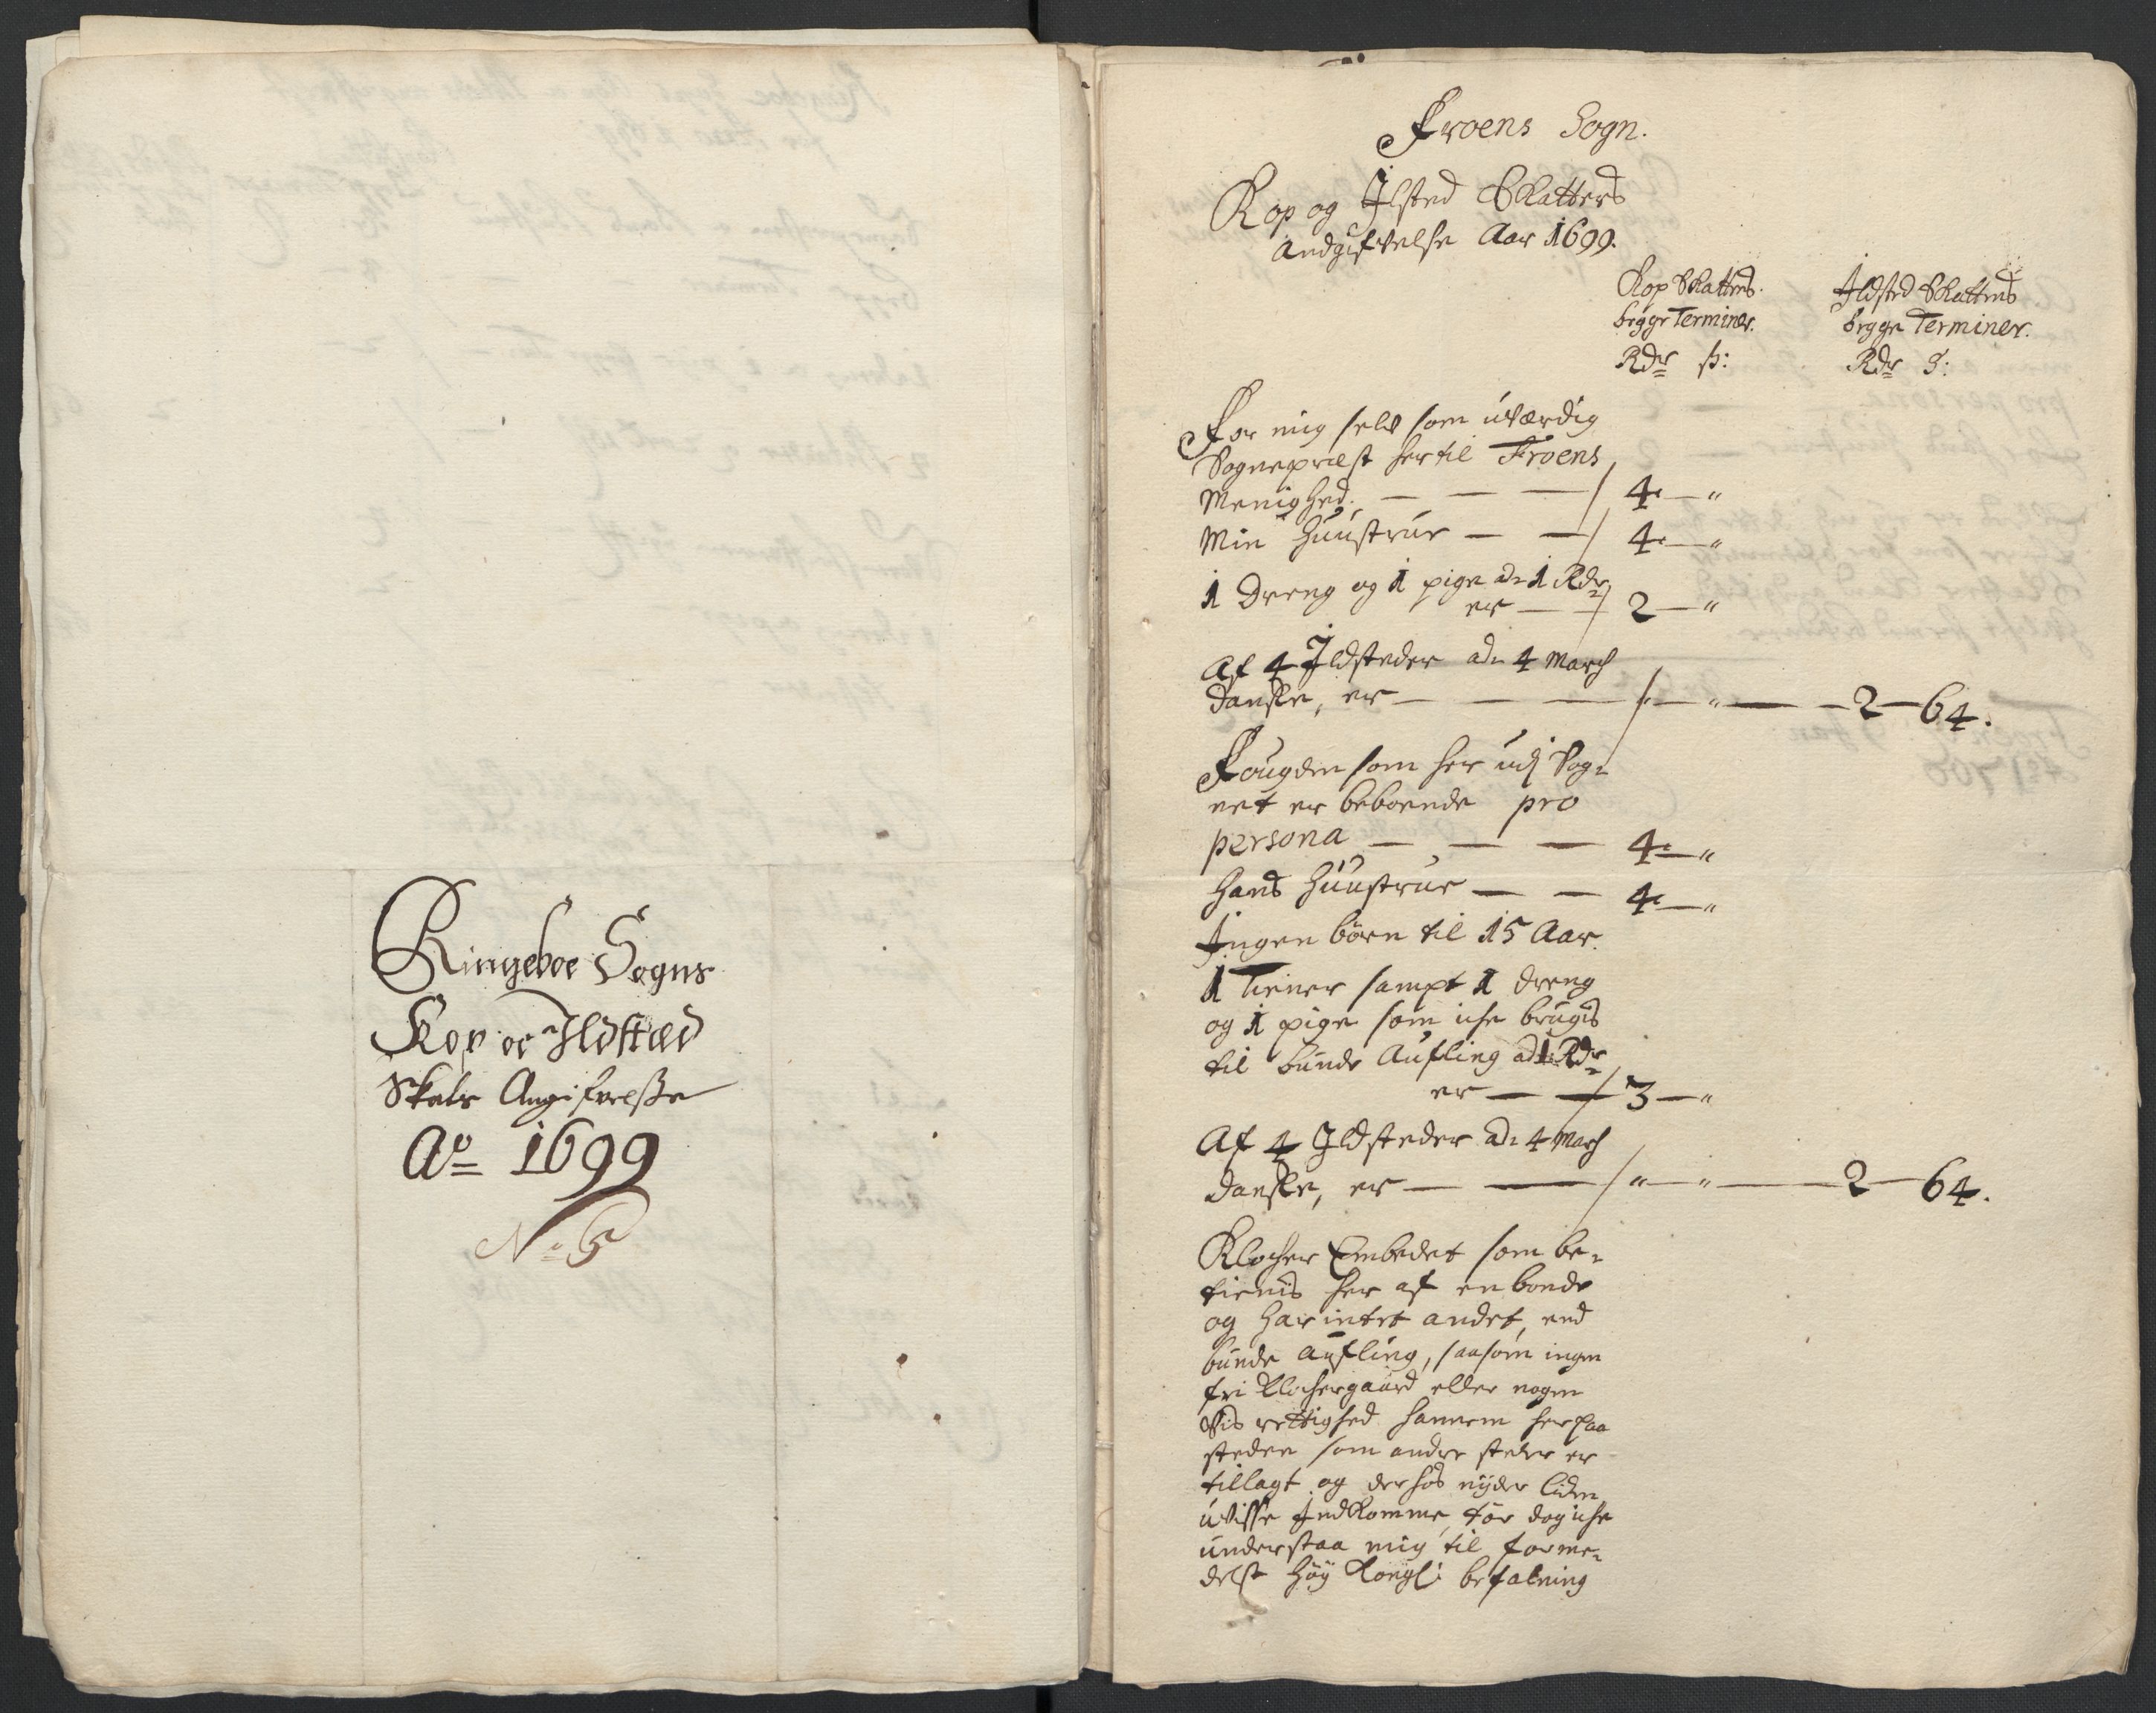 Ringeboe Sogns
Kop oc Ildstæd
Skats Angifvelsse
Ao 1699
No 5
Froens Sogn.
Kop og Ilsted Skatters
Andgifvelse Aar 1699.
Kop Skattens begge Terminer. Rdr ß:
Ildsted Skattens begge Terminer. Rdr ß:
For mig selv som uværdig
Sognepræst her til Froens
Menighed. — — — / 4 — "
Min Huustrue — — / 4 — "
1 Dreng og 1 pige ad 1 Rdr
er — / 2 — "
Af 4 Ildsteder ad 4 March
Danske, er — — — / " — " — 2 — 64.
Fougden som her udj Sog-
net er beboende pro
persona — — — 4 — "
Hans Huustrue — — 4 — "
Ingen børn til 15 Aar.
1 Tiener sampt 1 dreng
og 1 pige som iche brugis
til bunde Aufling ad 1 Rdr
er — / 3 — "
Af 4 Ildsteder ad 4 March
Danske, er — — / " — " — 2 — 64.
Klocher Embedet som be-
tienis her af en bonde
og har intet andet, end
bunde aufling, saasom ingen
fri Klochergaard eller nogen
vis rettighed hannem her paa
steden som andre steder er
tillagt og der hos nyder liden
uvisse Indkomme, tør dog iche
understaa mig til forme-
delst høy Kongl: befalning